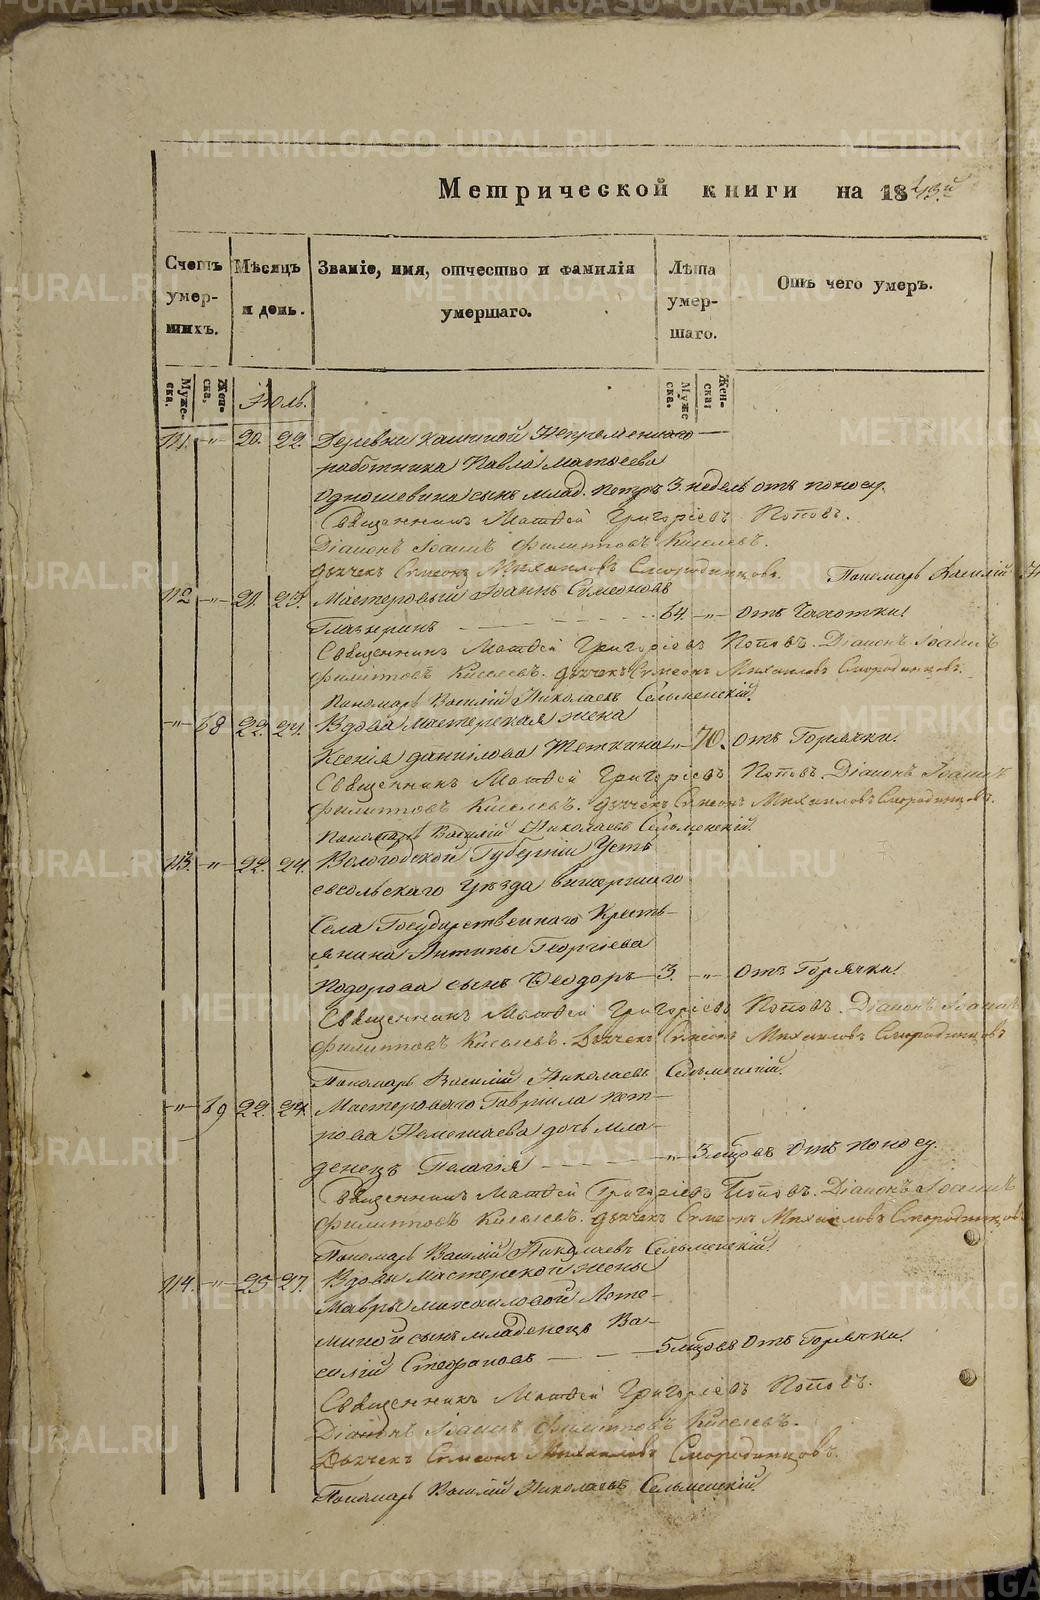 METRIKI.GASO-URAL.RU
Метрической книги на 1843й
Счетъ умер-шихъ.
Мѣсяцъ и день.
Званіе, имя, отчество и фамилія умершаго.
Лѣта умер-шаго.
Отъ чего умеръ.
Муже-ска.
Жен-ска.
Іюль.
Муже ска.
Жен-ска.
111. -"- 20. 22. Деревни Непременнаго
работника Павла Матѳеева
сынъ млад. Петръ 3. недель отъ поносу.
Священникъ Матѳей Григоріевъ Поповъ.
Діаконъ Іоаннъ Филипповъ Киселевъ.
Дьячекъ Симеонъ Михаиловъ Смородинцовъ. Пономарь Василій
112 -"- 21. 23. Мастеровый Іоаннъ Симеоновъ
Глазыринъ 64. -"- отъ Чахотки.
Священникъ Матѳей Григоріевъ Поповъ. Діаконъ Іоаннъ
Филипповъ Киселевъ. Дьячекъ Симеонъ Михаиловъ Смородинцовъ.
Пономарь Василій Николаевъ Сельменскій.
-"- 68 22. 24. Вдова мастерская жена
Ксенія Данилова Теткина -"- 70. отъ Горячки.
Священникъ Матѳей Григоріевъ Поповъ. Діаконъ Іоаннъ
Филипповъ Киселевъ. Дьячекъ Симеонъ Михаиловъ Смородинцовъ.
Пономарь Василій Николаевъ Сельменскій.
113. -"- 22. 24. Вологодской Губерніи Усть
сысольскаго Уѣзда
Села Государственнаго Кресть-
янина Антипы Георгіева
Подорова сынъ Ѳеодоръ 3. -"- отъ Горячки.
Священникъ Матѳей Григоріевъ Поповъ. Діаконъ Іоаннъ
Филипповъ Киселевъ. Дьячекъ Симеонъ Михаиловъ Смородинцовъ
Пономарь Василій Николаевъ Сельменскій.
-"- 69 22. 24. Мастероваго Гавріила Пет-
рова дочь мла-
денецъ Пелагія -"- 3 мцовъ отъ поносу.
Священникъ Матѳей Григоріевъ Поповъ. Діаконъ Іоаннъ
Филипповъ Киселевъ. Дьячекъ Симеонъ Михаиловъ Смородинцовъ
Пономарь Василій Николаевъ Сельменскій.
114. -"- 25 27. Вдовы Мастерской жены
Мавры Михаиловой
сынъ младенецъ Ва-
силій Стефановъ 5 мцовъ отъ Горячки.
Священникъ Матѳей Григоріевъ Поповъ.
Діаконъ Іоаннъ Филипповъ Киселевъ.
Дьячекъ Симеонъ Михаиловъ Смородинцовъ.
Пономарь Василій Николаевъ Сельменскій.